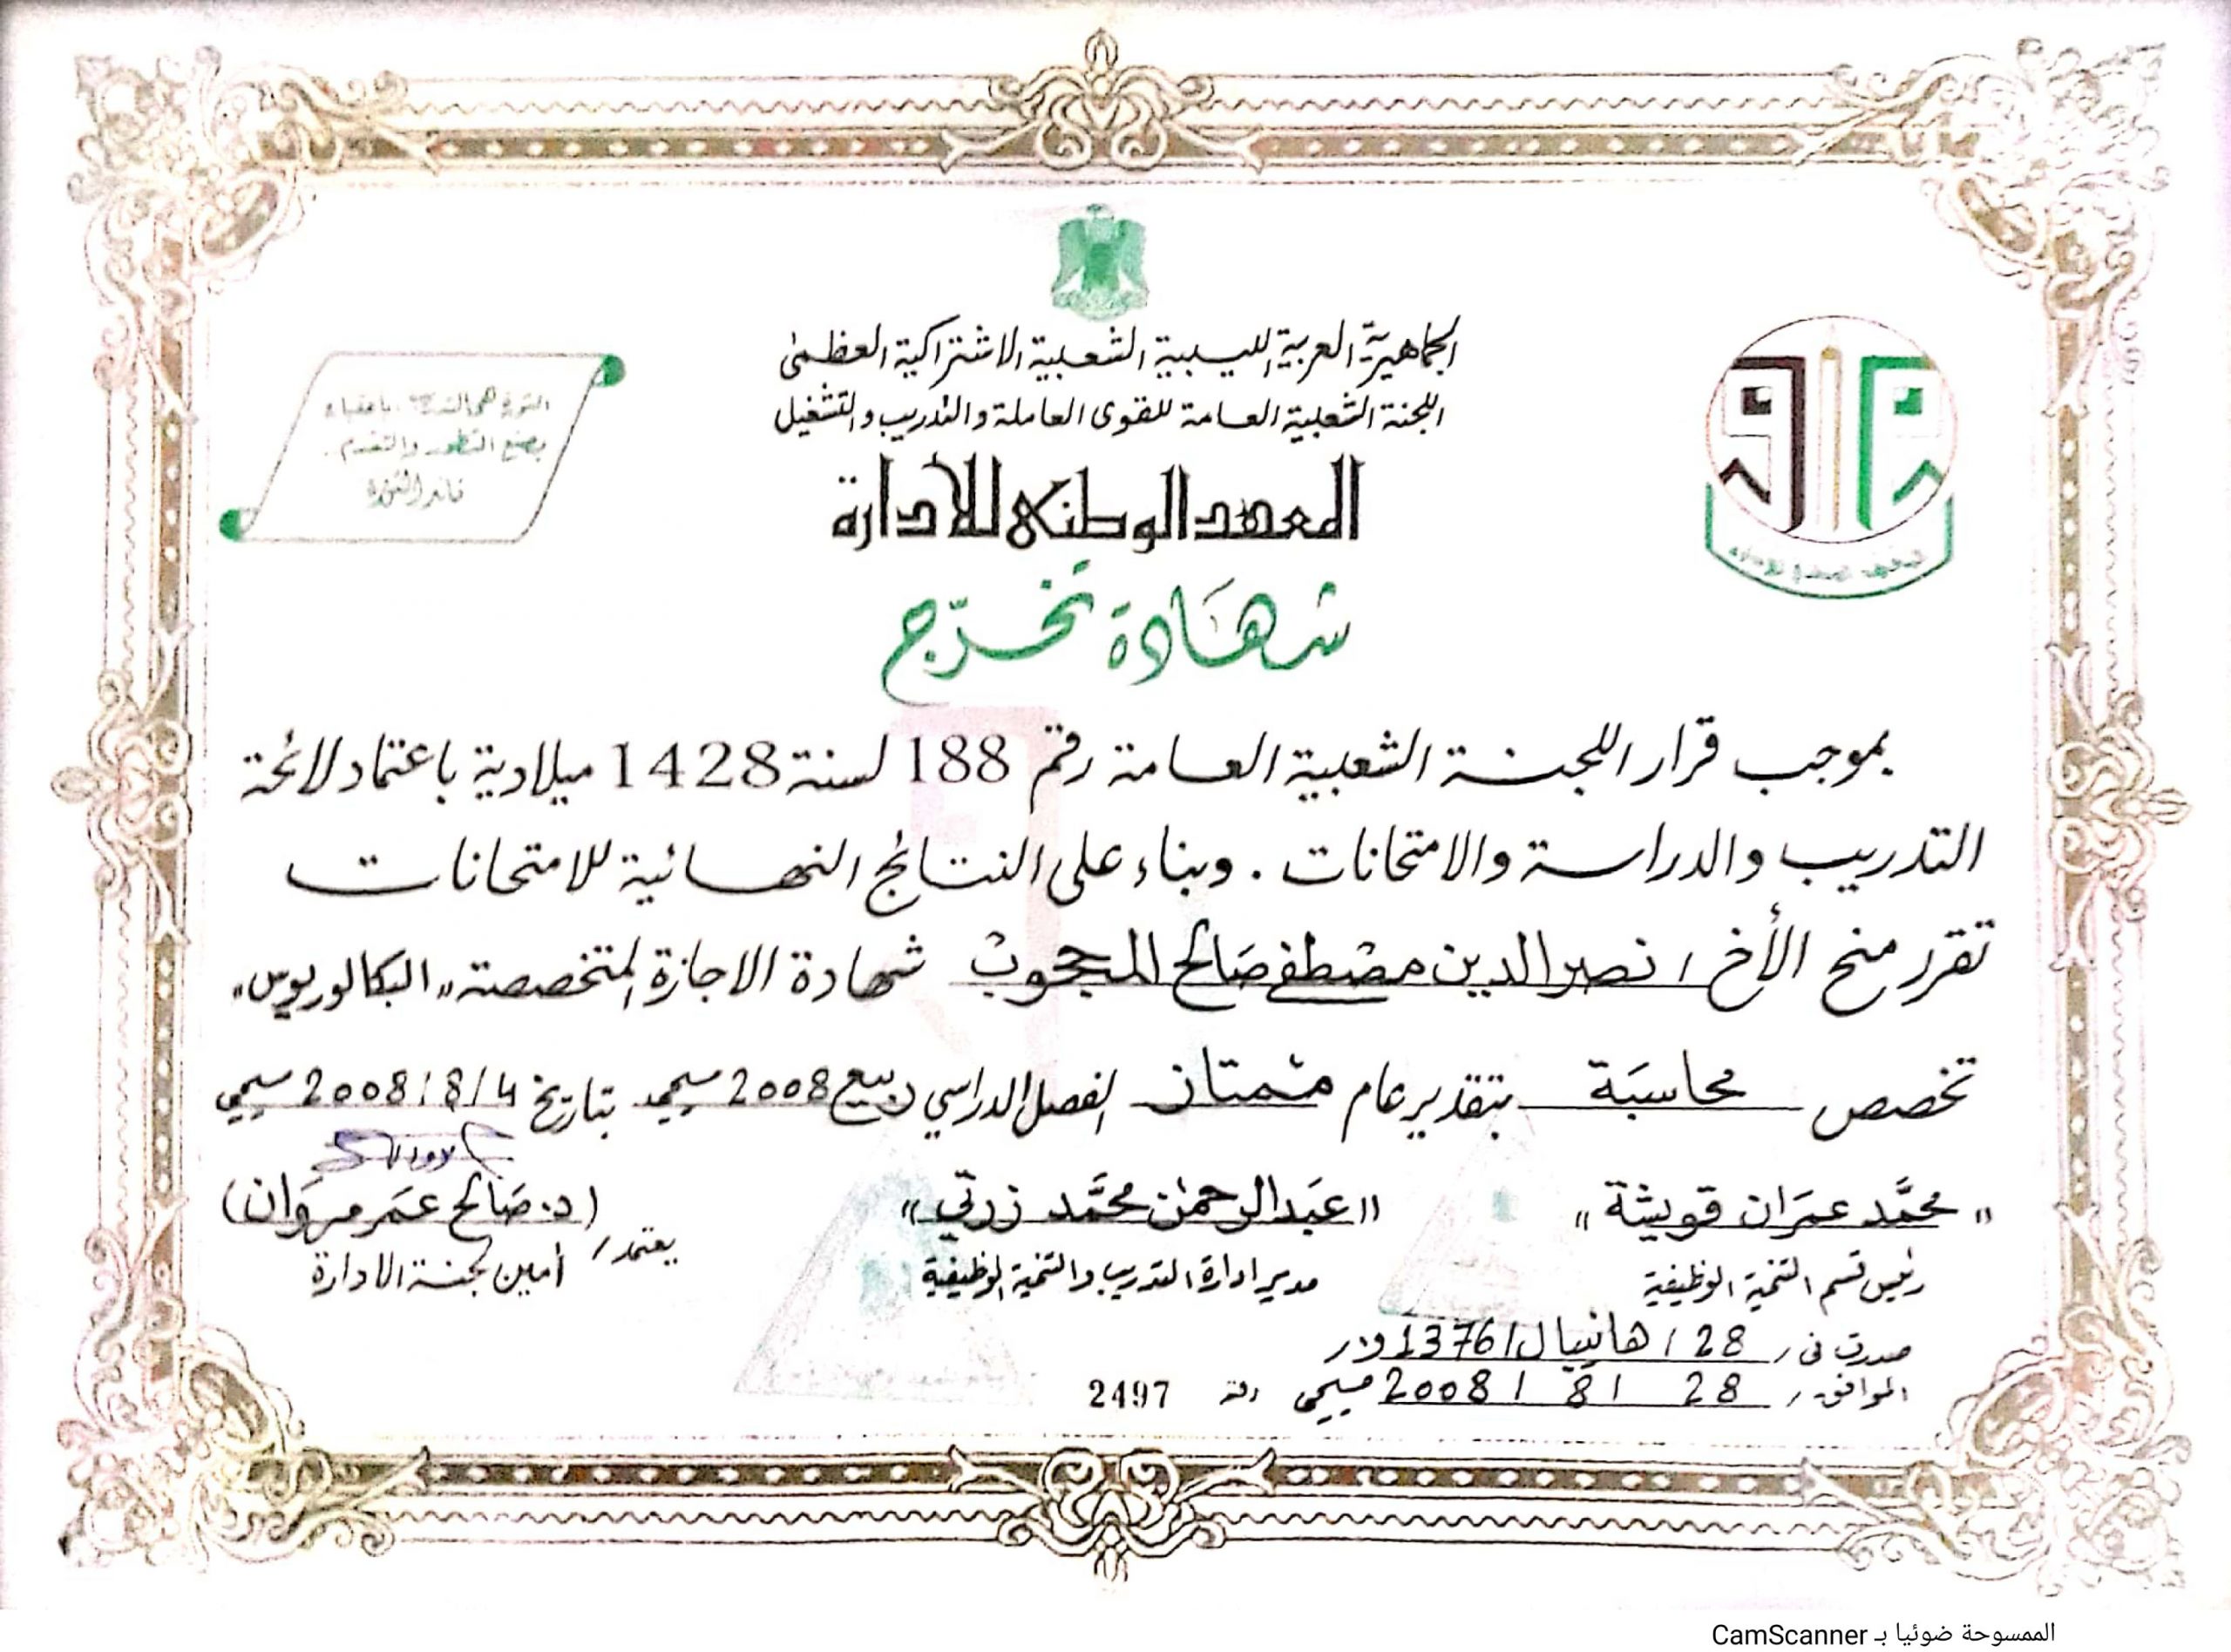 الجماهيرية العربية الليبية الشعبية الاشتراكية العظمى
اللجنة الشعبية العامة للقوى العاملة والتدريب والتشغيل
المعهد الوطني للأدارة
شهادة تخرّج
والتقدم.
قائد الثورة
بموجب قرار اللجنة الشعبية العامة رقم 188 لسنة 1428 ميلادية باعتماد لائحة
التدريب والدراسة والامتحانات . وبناء على النتائج النهائية للامتحانات
تقرر منح الأخ / نصر الدين مصطفى صالح المجحوب شهادة الاجازة المتخصصة "البكالوريوس"
تخصص محاسبة بتقدير عام ممتاز الفصل الدراسي ربيع 2008 مسيحي بتاريخ 4/8/2008 مسيحي
"محمَّد عمران قويشة" "عبد الرحمن محمَّد زرتي" (د. صالح عمر مروان)
رئيس قسم التنمية الوظيفية مدير ادارة التدريب والتنمية الوظيفية يعتمد/ أمين لجنة الادارة
صدرت في / 28 / هانيبال / 1376 و.ر
الموافق / 28 / 8 / 2008 مسيحي 2497
الممسوحة ضوئيا بـ CamScanner